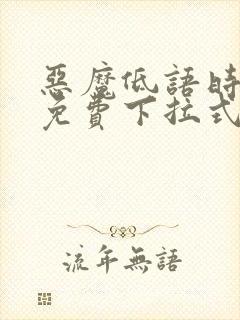 惡魔低語時
免費下拉式
流年無語